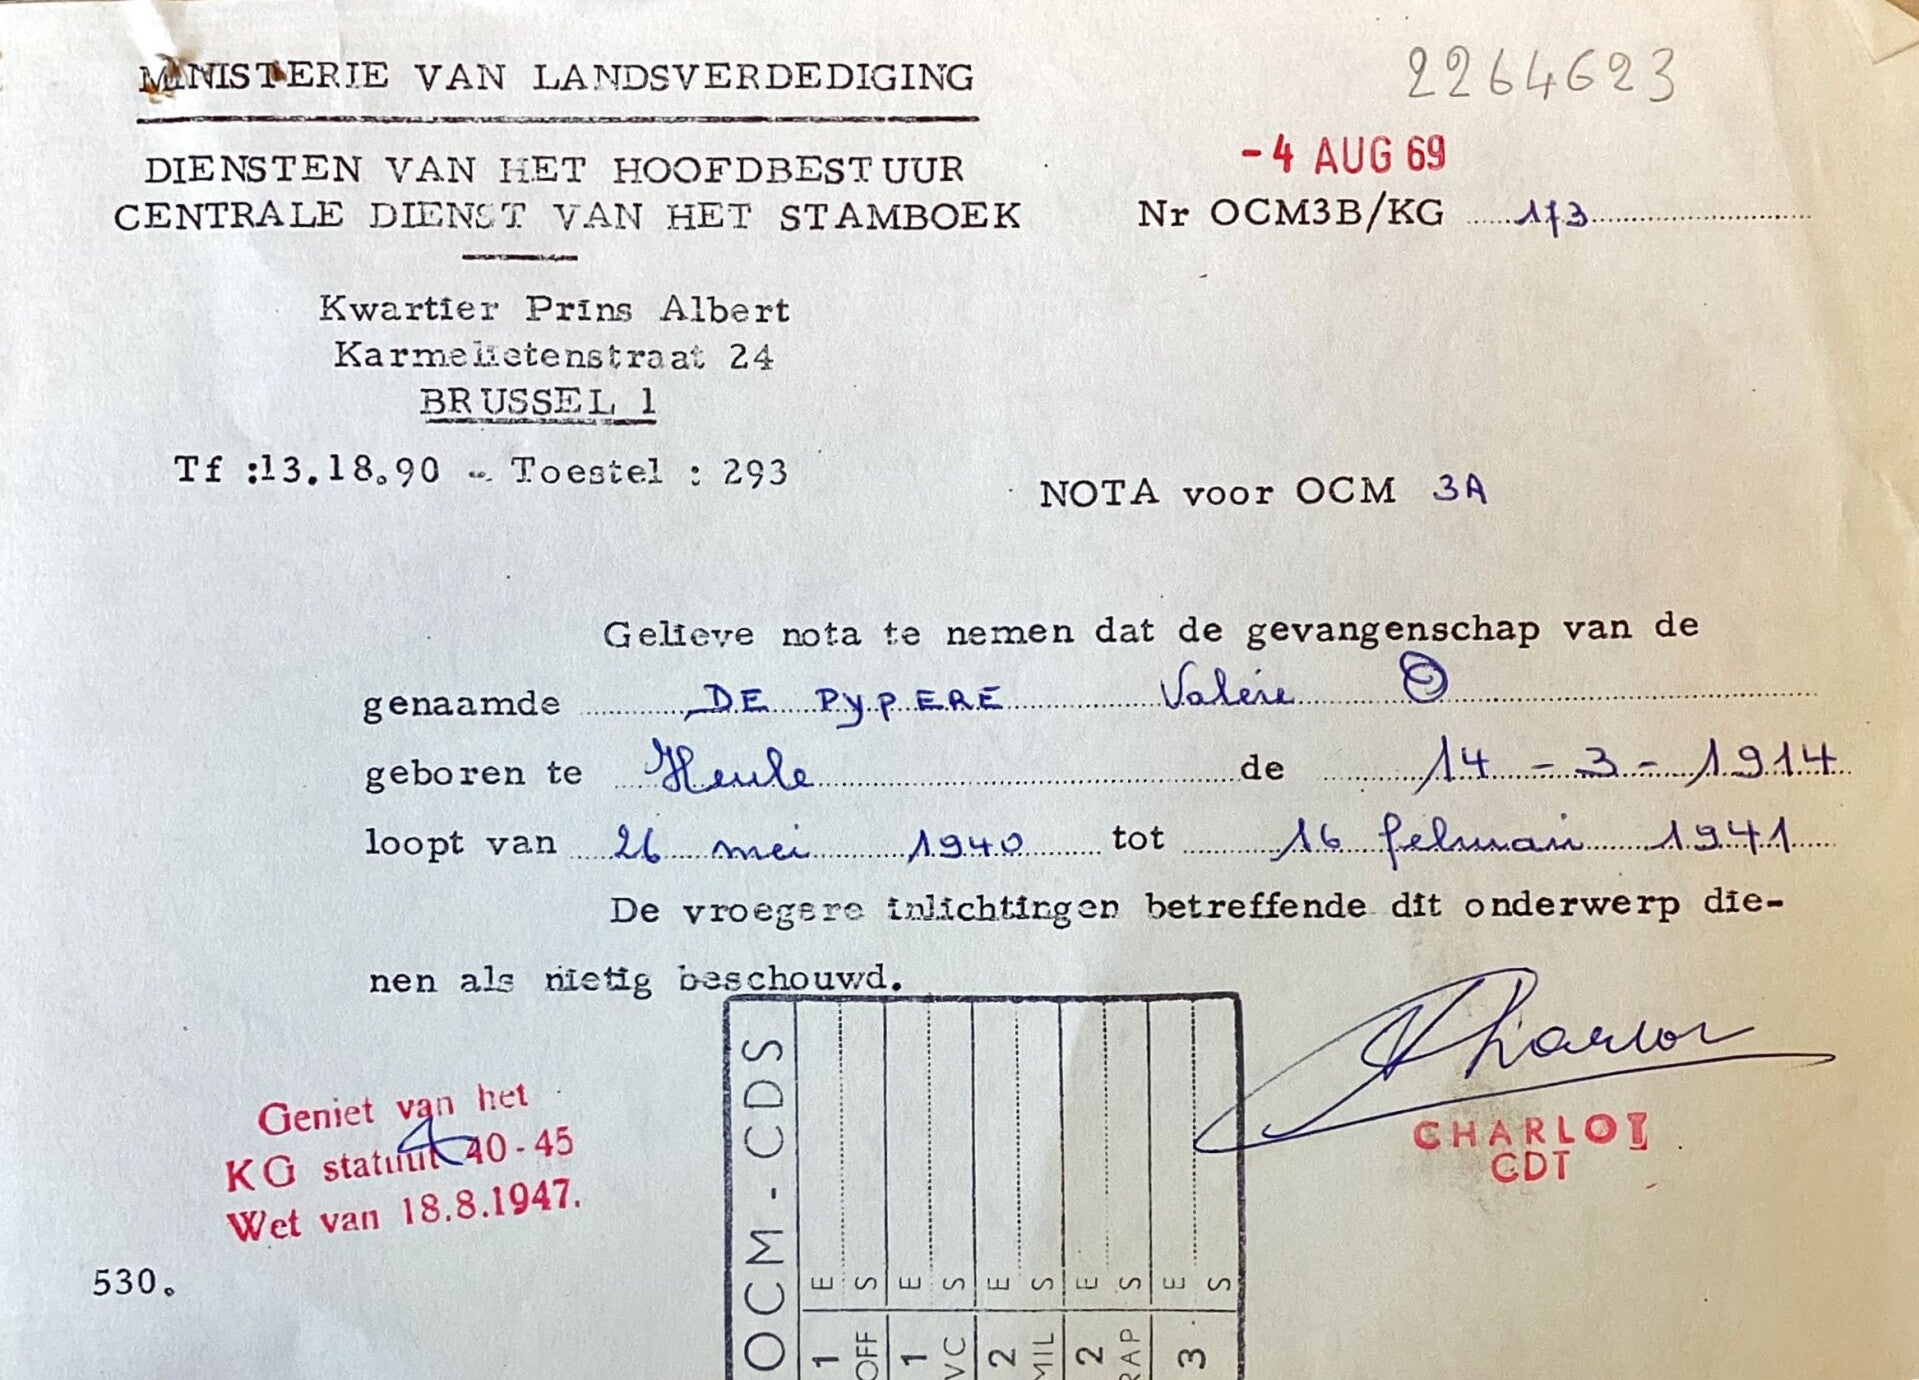 MINISTERIE VAN LANDSVERDEDIGING
2264623
DIENSTEN VAN HET HOOFDBESTUUR
CENTRALE DIENST VAN HET STAMBOEK
-4 AUG 69
Nr OCM3B/KG 173
Kwartier Prins Albert
Karmelietenstraat 24
BRUSSEL 1
Tf :13.18.90 - Toestel : 293
NOTA voor OCM 3A
Gelieve nota te nemen dat de gevangenschap van de
genaamde DE PYPERE Valère
geboren te Heule de 14 - 3 - 1914
loopt van 26 mei 1940 tot 16 februari 1941
De vroegere inlichtingen betreffende dit onderwerp die-
nen als nietig beschouwd.
Charlot
CHARLOT
CDT
Geniet van het
KG statuut 40-45
Wet van 18.8.1947.
530.
OCM - CDS
1 OFF E S
1 VC E S
2 MIL E S
2 RAP E S
3 E S